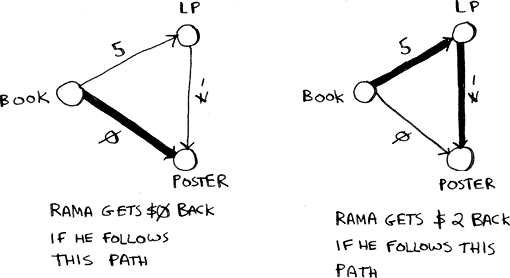 LP
5
BOOK
-7
0
POSTER
RAMA GETS $0 BACK
IF HE FOLLOWS
THIS PATH
LP
5
BOOK
-7
0
POSTER
RAMA GETS $2 BACK
IF HE FOLLOWS THIS
PATH